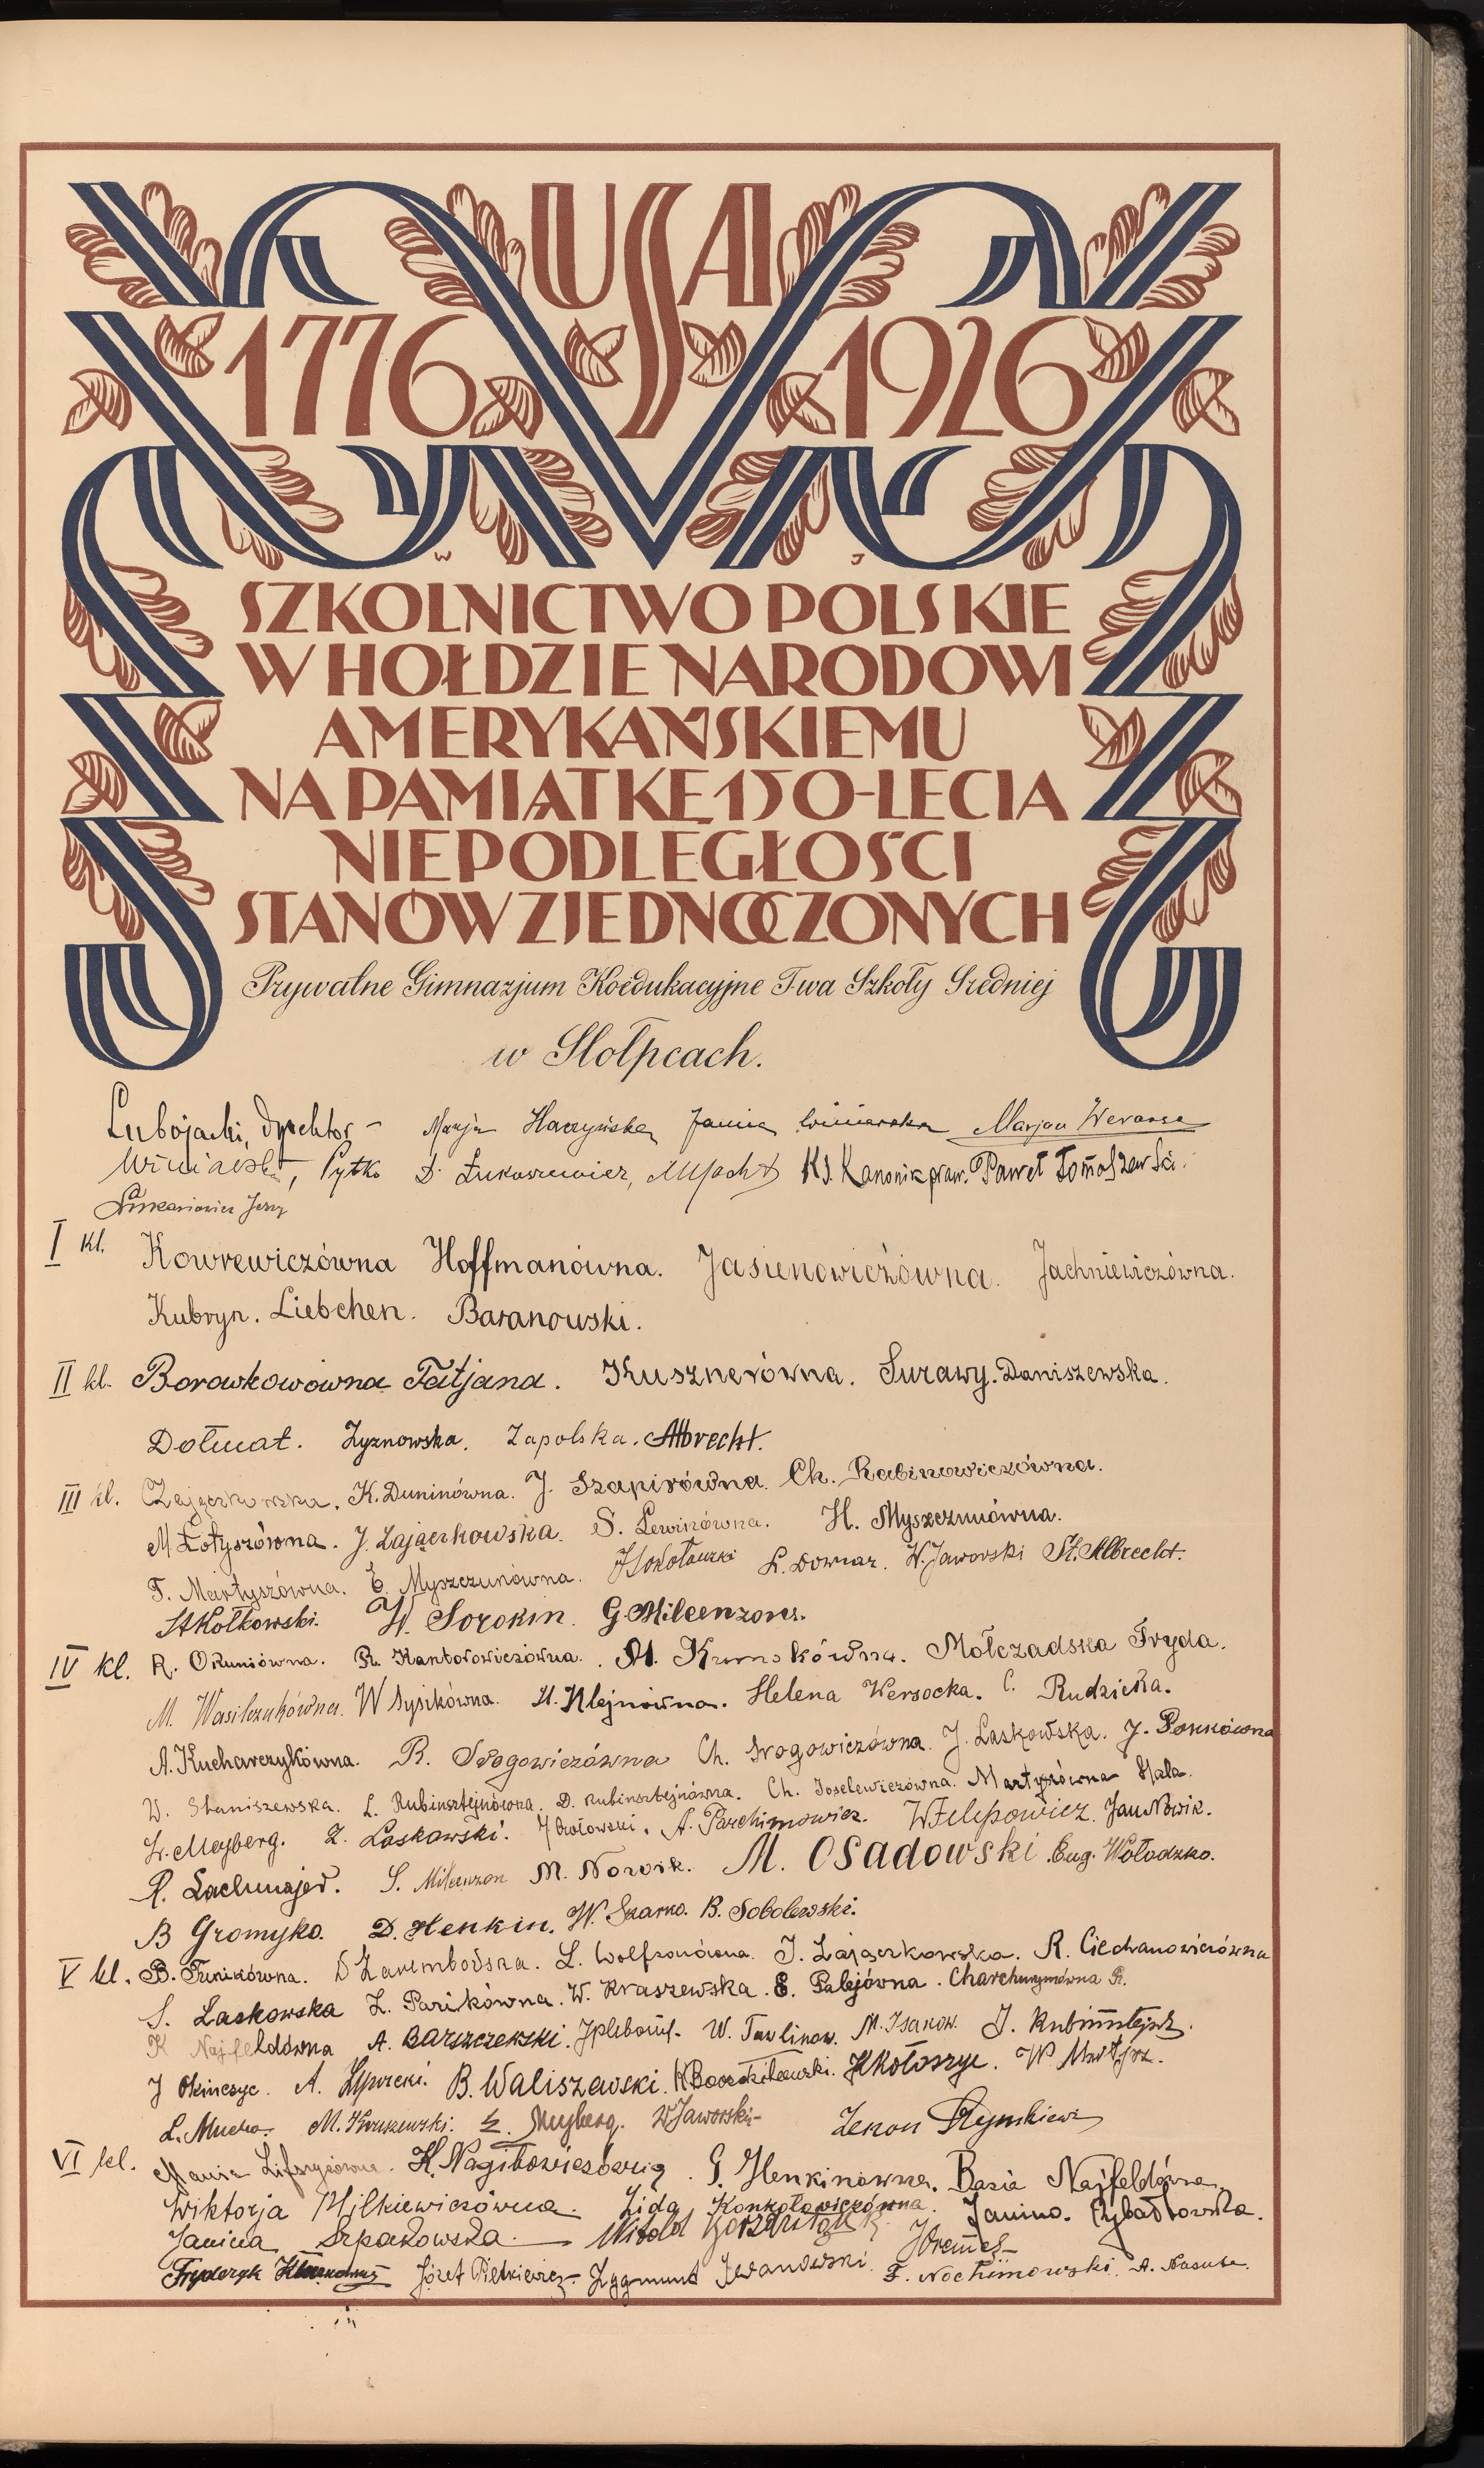 USA
1776 1926
SZKOLNICTWO POLSKIE
W HOŁDZIE NARODOWI
AMERYKAŃSKIEMU
NA PAMIĄTKĘ 150-LECIA
NIEPODLEGŁOŚCI
STANÓW ZJEDNOCZONYCH
Prywatne Gimnazjum Koedukacyjne T-wa Szkoły Średniej
w Stołpcach.
Lubojacki, dyrektor - Marja Janina Winiarska Marjan
Winiarski, Pytko D. Łukaszewicz, Ks. Kanonik praw. Paweł Tomaszewski.
Jerzy
I kl. Kowrewiczówna Hoffmanówna. Jasienowiczówna. Jachniewiczówna.
Kubryn. Liebchen. Baranowski.
II kl. Borowkowówna Tatjana. Kusznerówna. Surawy. Daniszewska.
Dołmat. Żyznowska. Zapolska. Albrecht.
III kl. Zajączkowska. K. Duninówna. J. Szapirówna. Ch. Rabinowiczówna.
M Łotyszówna. J. Zajączkowska. S. Lewinówna. H. Myszczunówna.
T. Martyszówna. E. Myszczunówna. L. Downar. W. Jaworski St. Albrecht.
St Kołkowski. W. Sorokin. G. Milcenzon.
IV kl. R. Okuniówna. R. Kantorowiczówna. M. Mołczadska Fryda.
M. Wasilczukówna. W Sysikówna. H. Klejnówna. Helena Wersocka. C. Rudzicka.
A. Kucharczykówna. R. Srogowiczówna Ch. Srogowiczówna. J. Laskowska. J.
W. Staniszewska. L. Rubinsztejnówna. D. Rubinsztejnówna. Ch. Joselewiczówna. Martyszówna Hala.
L. Mayberg. Z. Laskowski. A. Parchimowicz. W Filipowicz. Jan Nowik.
R. Lachmajer. S. Milcenzon M. Nowik. M. Osadowski Eug. Wołodzko.
B Gromyko. D. Henkin. W. Szarko. B. Sobolewski.
V kl. B. Tunikówna. D Zarembowska. L. Wolfsonówna. J. Zajączkowska. R. Ciechanowiczówna
S. Laskowska Z. Parikówna. W. Kraszewska. E. Palejówna. R.
K Najfeldówna A. Barszczewski. W. Tawlinow. M. Isakow. J. Rubinsztejn.
J Okinczyc. A. B. Waliszewski. Kołoszyc. W
L. Mucha. M. Kraszewski. Mayberg. W Jaworski Zenon Rymkiewicz
VI kl. Mania K. Nagibowiczówna. G. Henkinówna. Basia Najfeldówna.
Wiktorja Milkiewiczówna. Lida Konkołowiczówna. Janina Rybałtowska.
Janina Szpakowska. Witold
Fryderyk Józef Pietkiewicz. Zygmunt Iwanowski. F. Nochimowski.